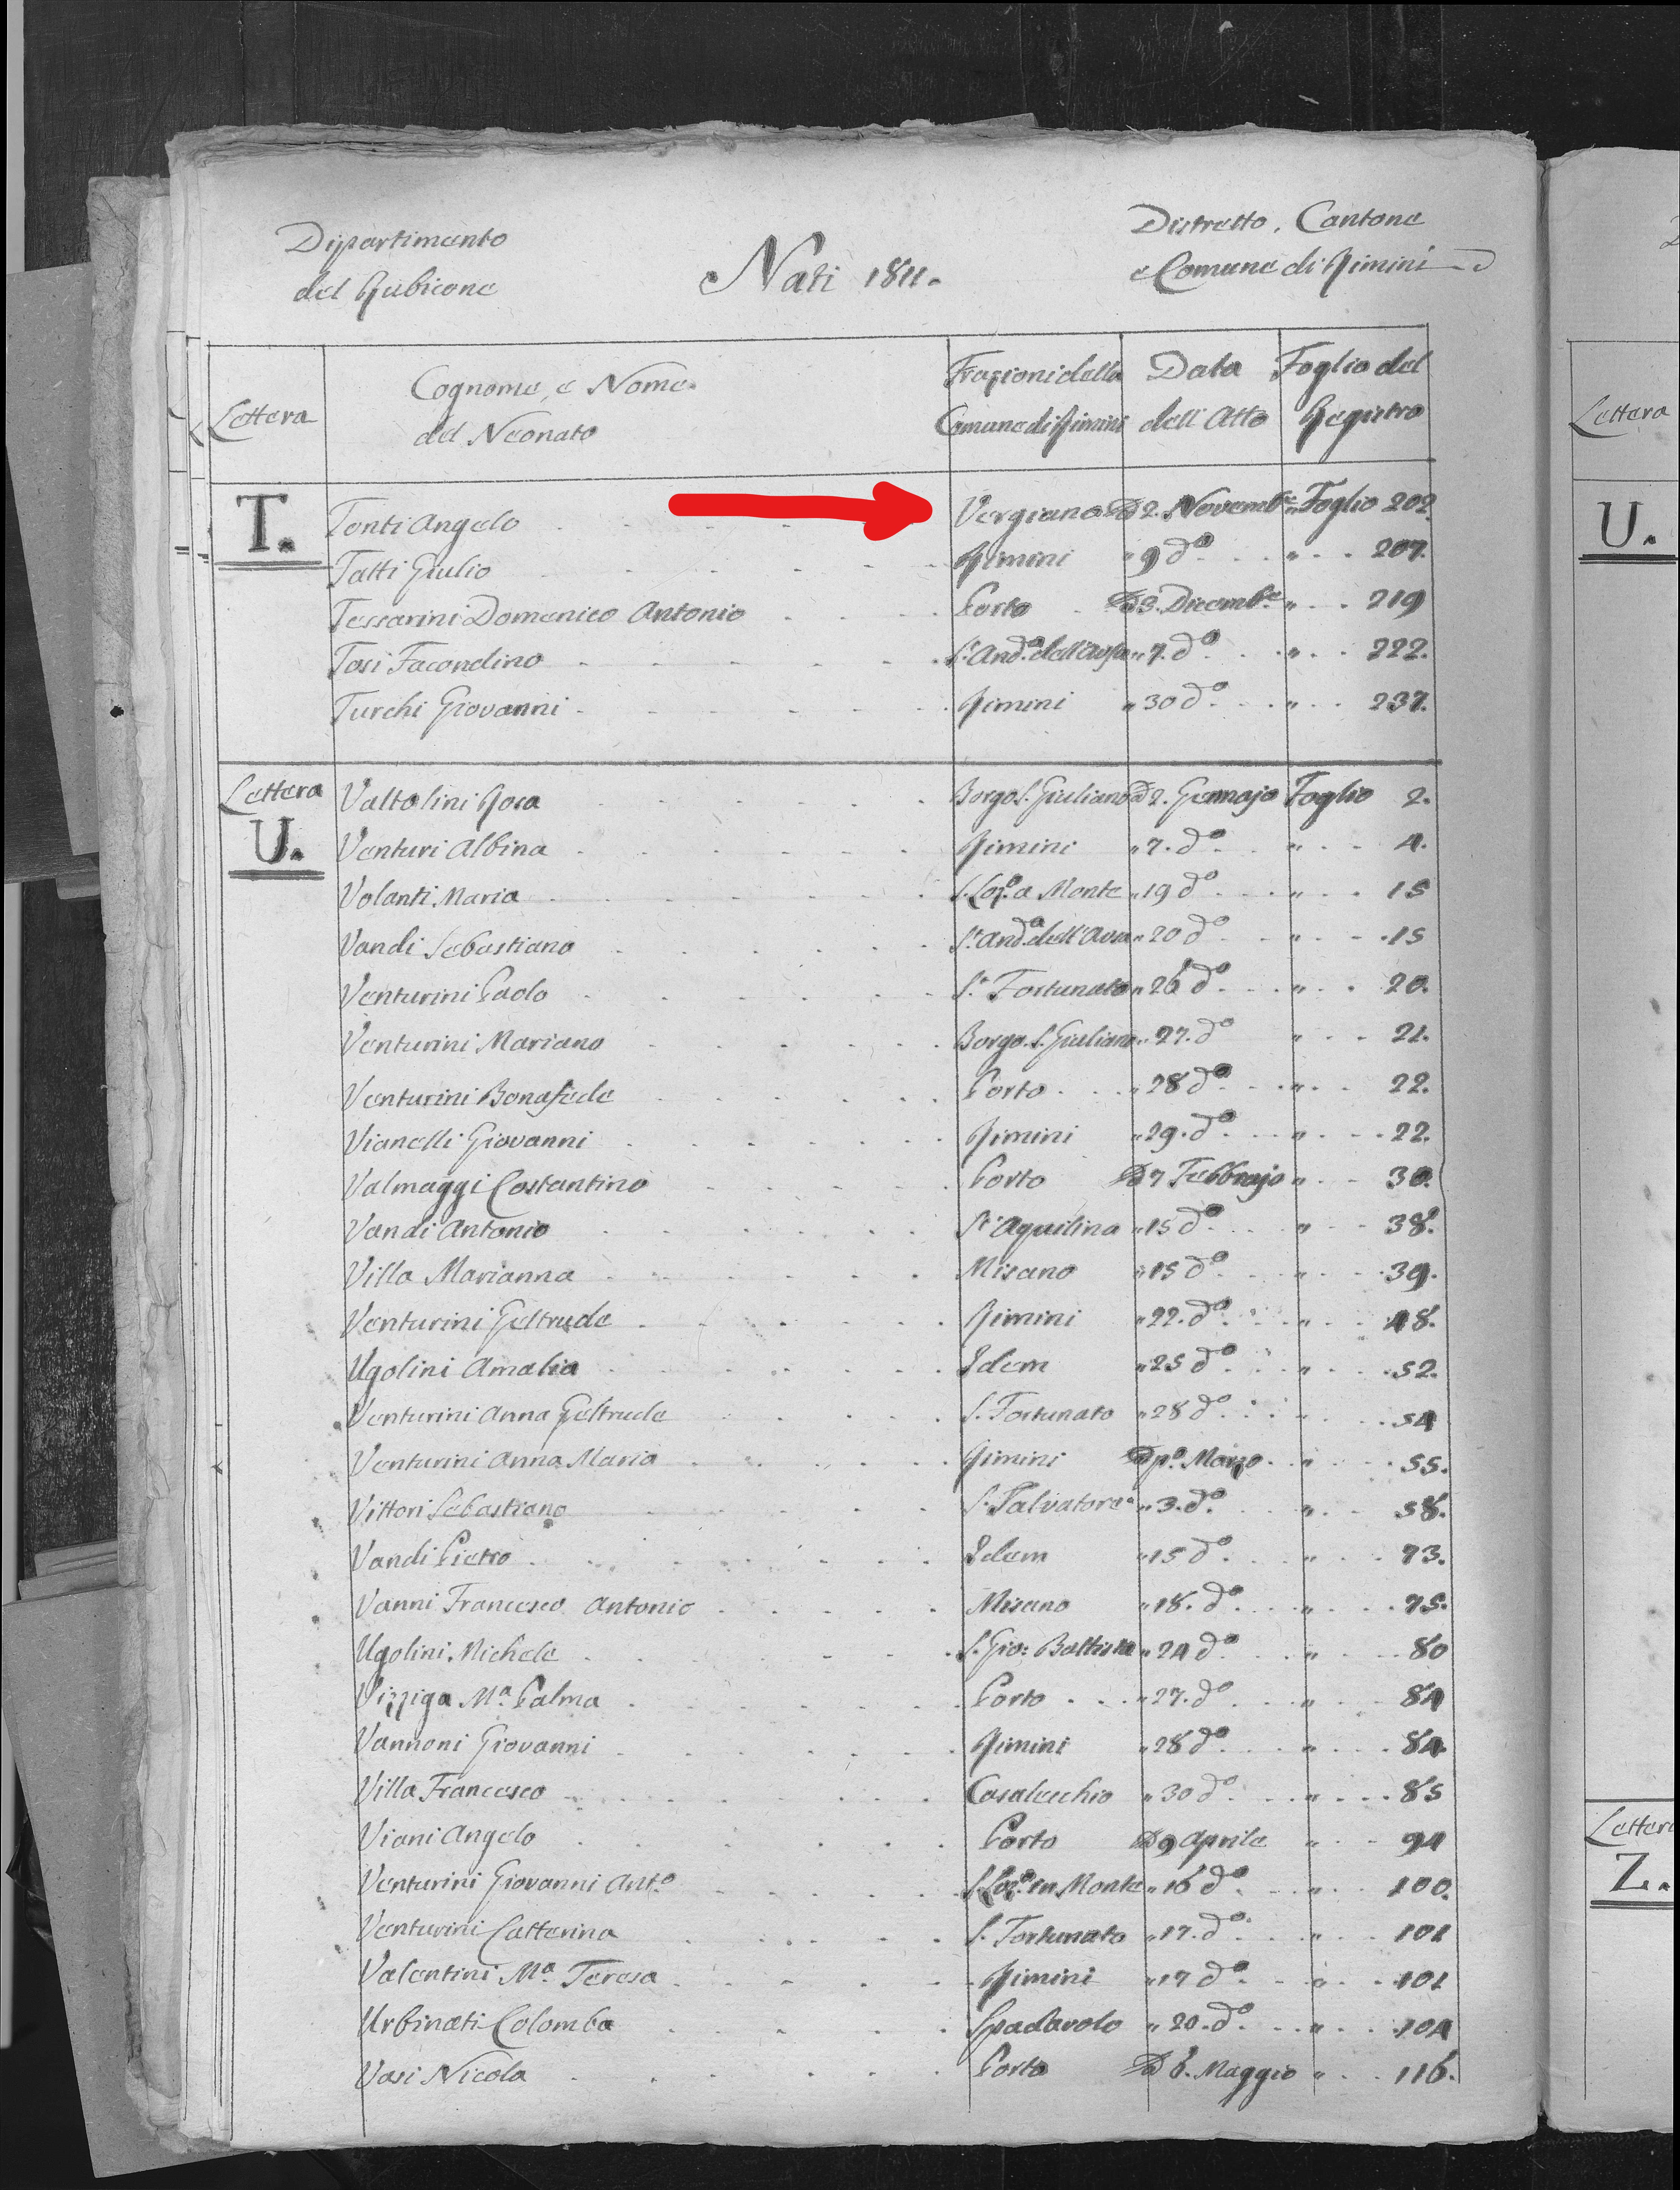 Dipartimento
del Rubicone
Nati 1811.
Distretto, Cantone
e Comune di Rimini
Lettera
Cognome, e Nome
del Neonato
Frazioni della
Comune di Rimini
Data
dell' Atto
Foglio del
Registro
T. Tonti Angelo Vergiano D 2. Novembe " Foglio 202.
Tatti Giulio Rimini " 9 do " 207.
Tessarini Domenico Antonio Porto D 3. Dicembe " 219
Tosi Facondino St. Anda. dell'Ausa " 7. do " 222.
Turchi Giovanni Rimini " 30 do " 237.
Lettera
U.
Valtolini Rosa Borgo S. Giuliano D 2. Gennajo Foglio 2.
Venturi Albina Rimini " 7. do " 4.
Volanti Maria S. Lozo. a Monte " 19 do " 15
Vandi Sebastiano St. Anda. dell'Ausa " 20 do " 15
Venturini Paolo St. Fortunato " 26 do " 20.
Venturini Mariano Borgo. S. Giuliano " 27. do " 21.
Venturini Bonafede Porto " 28 do " 22.
Vianelli Giovanni Rimini " 29. do " 22.
Valmaggi Costantino Porto D 7 Febbrajo " 30.
Vandi Antonio St. Aquilina " 15 do " 38.
Villa Marianna Misano " 15 do " 39.
Venturini Geltrude Rimini " 22. do " 48.
Ugolini Amalia Idem " 25 do " 52.
Venturini Anna Geltrude S. Fortunato " 28 do " 54
Venturini Anna Maria Rimini D po. Marzo " 55.
Vittori Sebastiano S. Salvatore " 3. do " 58.
Vandi Pietro Idem " 15 do " 73.
Vanni Francesco Antonio Misano " 18. do " 75.
Ugolini Michele S. Gio: Battista " 24 do " 80
Vizziga Ma. Palma Porto " 27. do " 84
Vannoni Giovanni Rimini " 28 do " 84.
Villa Francesco Casalecchio " 30 do " 85
Viani Angelo Porto D 9 Aprile " 94
Venturini Giovanni Anto. S. Lozo. in Monte " 16 do " 100.
Venturini Catterina S. Fortunato " 17. do " 101
Valentini Ma. Teresa Rimini " 17 do " 101
Urbinati Colomba Spadarolo " 20. do " 104
Vasi Nicola Porto D 6. Maggio " 116.
Lettera
U.
Lettera
Z.